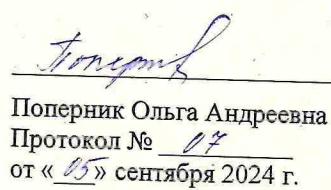 Поперник Ольга Андреевна
Протокол № 07
от « 05» сентября 2024 г.